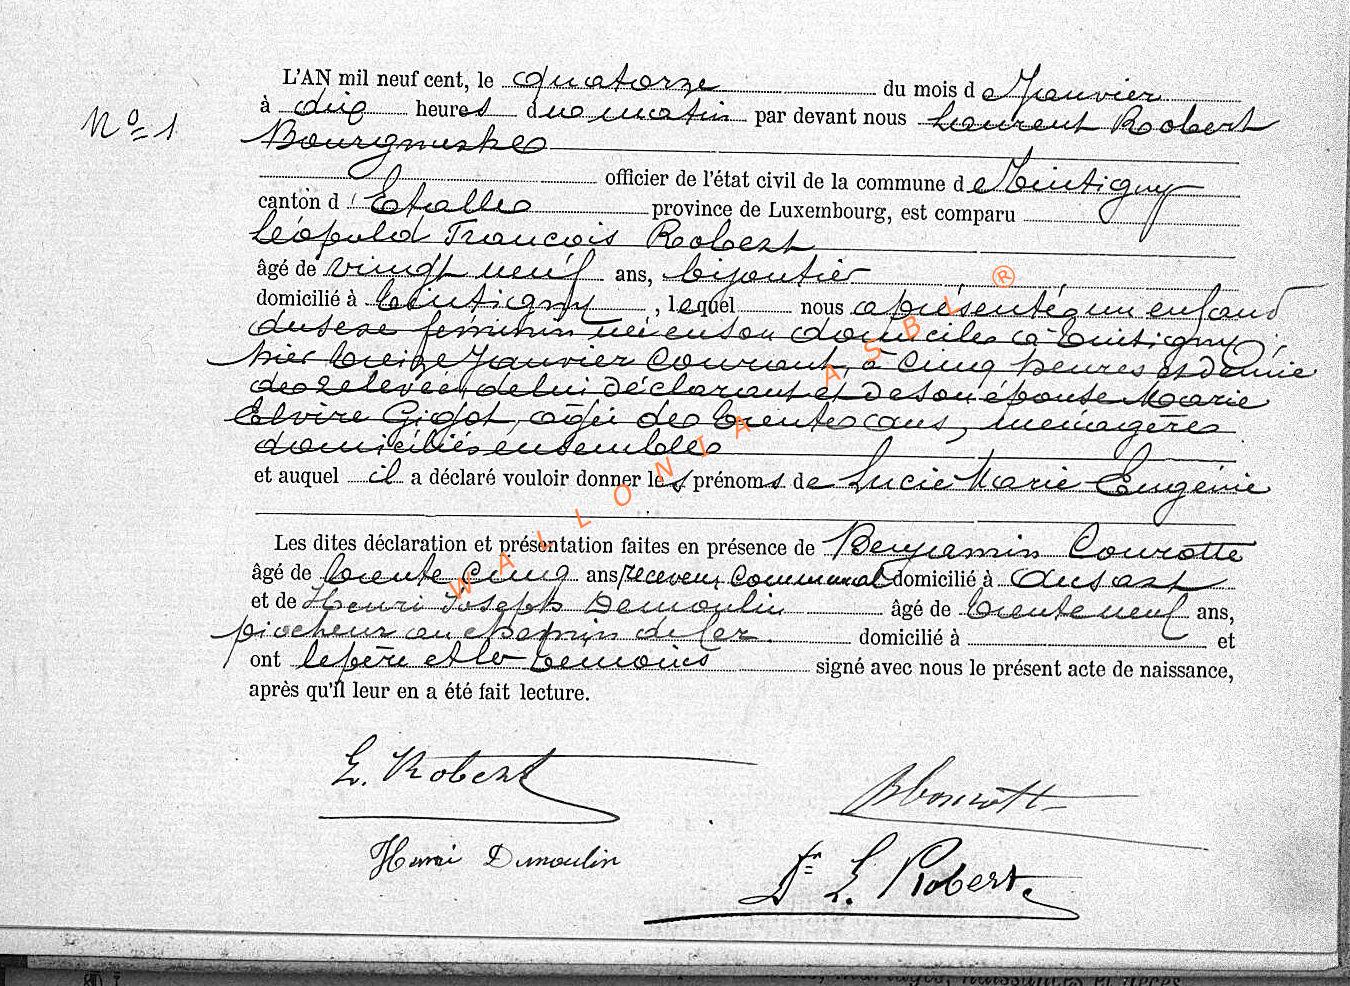 L'AN mil neuf cent, le quatorze du mois de Janvier
N° 1
à dix heures du matin par devant nous Laurent Robert
Bourgmestre
officier de l'état civil de la commune de Tintigny
canton d'Etalle province de Luxembourg, est comparu
Léopold François Robert
âgé de vingt neuf ans, bijoutier
domicilié à Tintigny, lequel nous a présenté un enfant
du sexe féminin né en son domicile à Tintigny,
hier treize Janvier courant, à cinq heures et demie
de relevée, de lui déclarant et de son épouse Marie
Elvire Gigot, agée de trente ans, ménagère
domiciliés ensemble
et auquel il a déclaré vouloir donner les prénoms de Lucie Marie Eugénie
Les dites déclaration et présentation faites en présence de Benjamin Courotte
âgé de trente cinq ans, receveur communal domicilié à
et de Henri Joseph Demoulin âgé de trente neuf ans,
piocheur au chemin de fer domicilié à et
ont le père et les témoins signé avec nous le présent acte de naissance,
après qu'il leur en a été fait lecture.
L. Robert
B Courotte
Henri Dumoulin
Dr L. Robert
WALLONIA ASBL ®